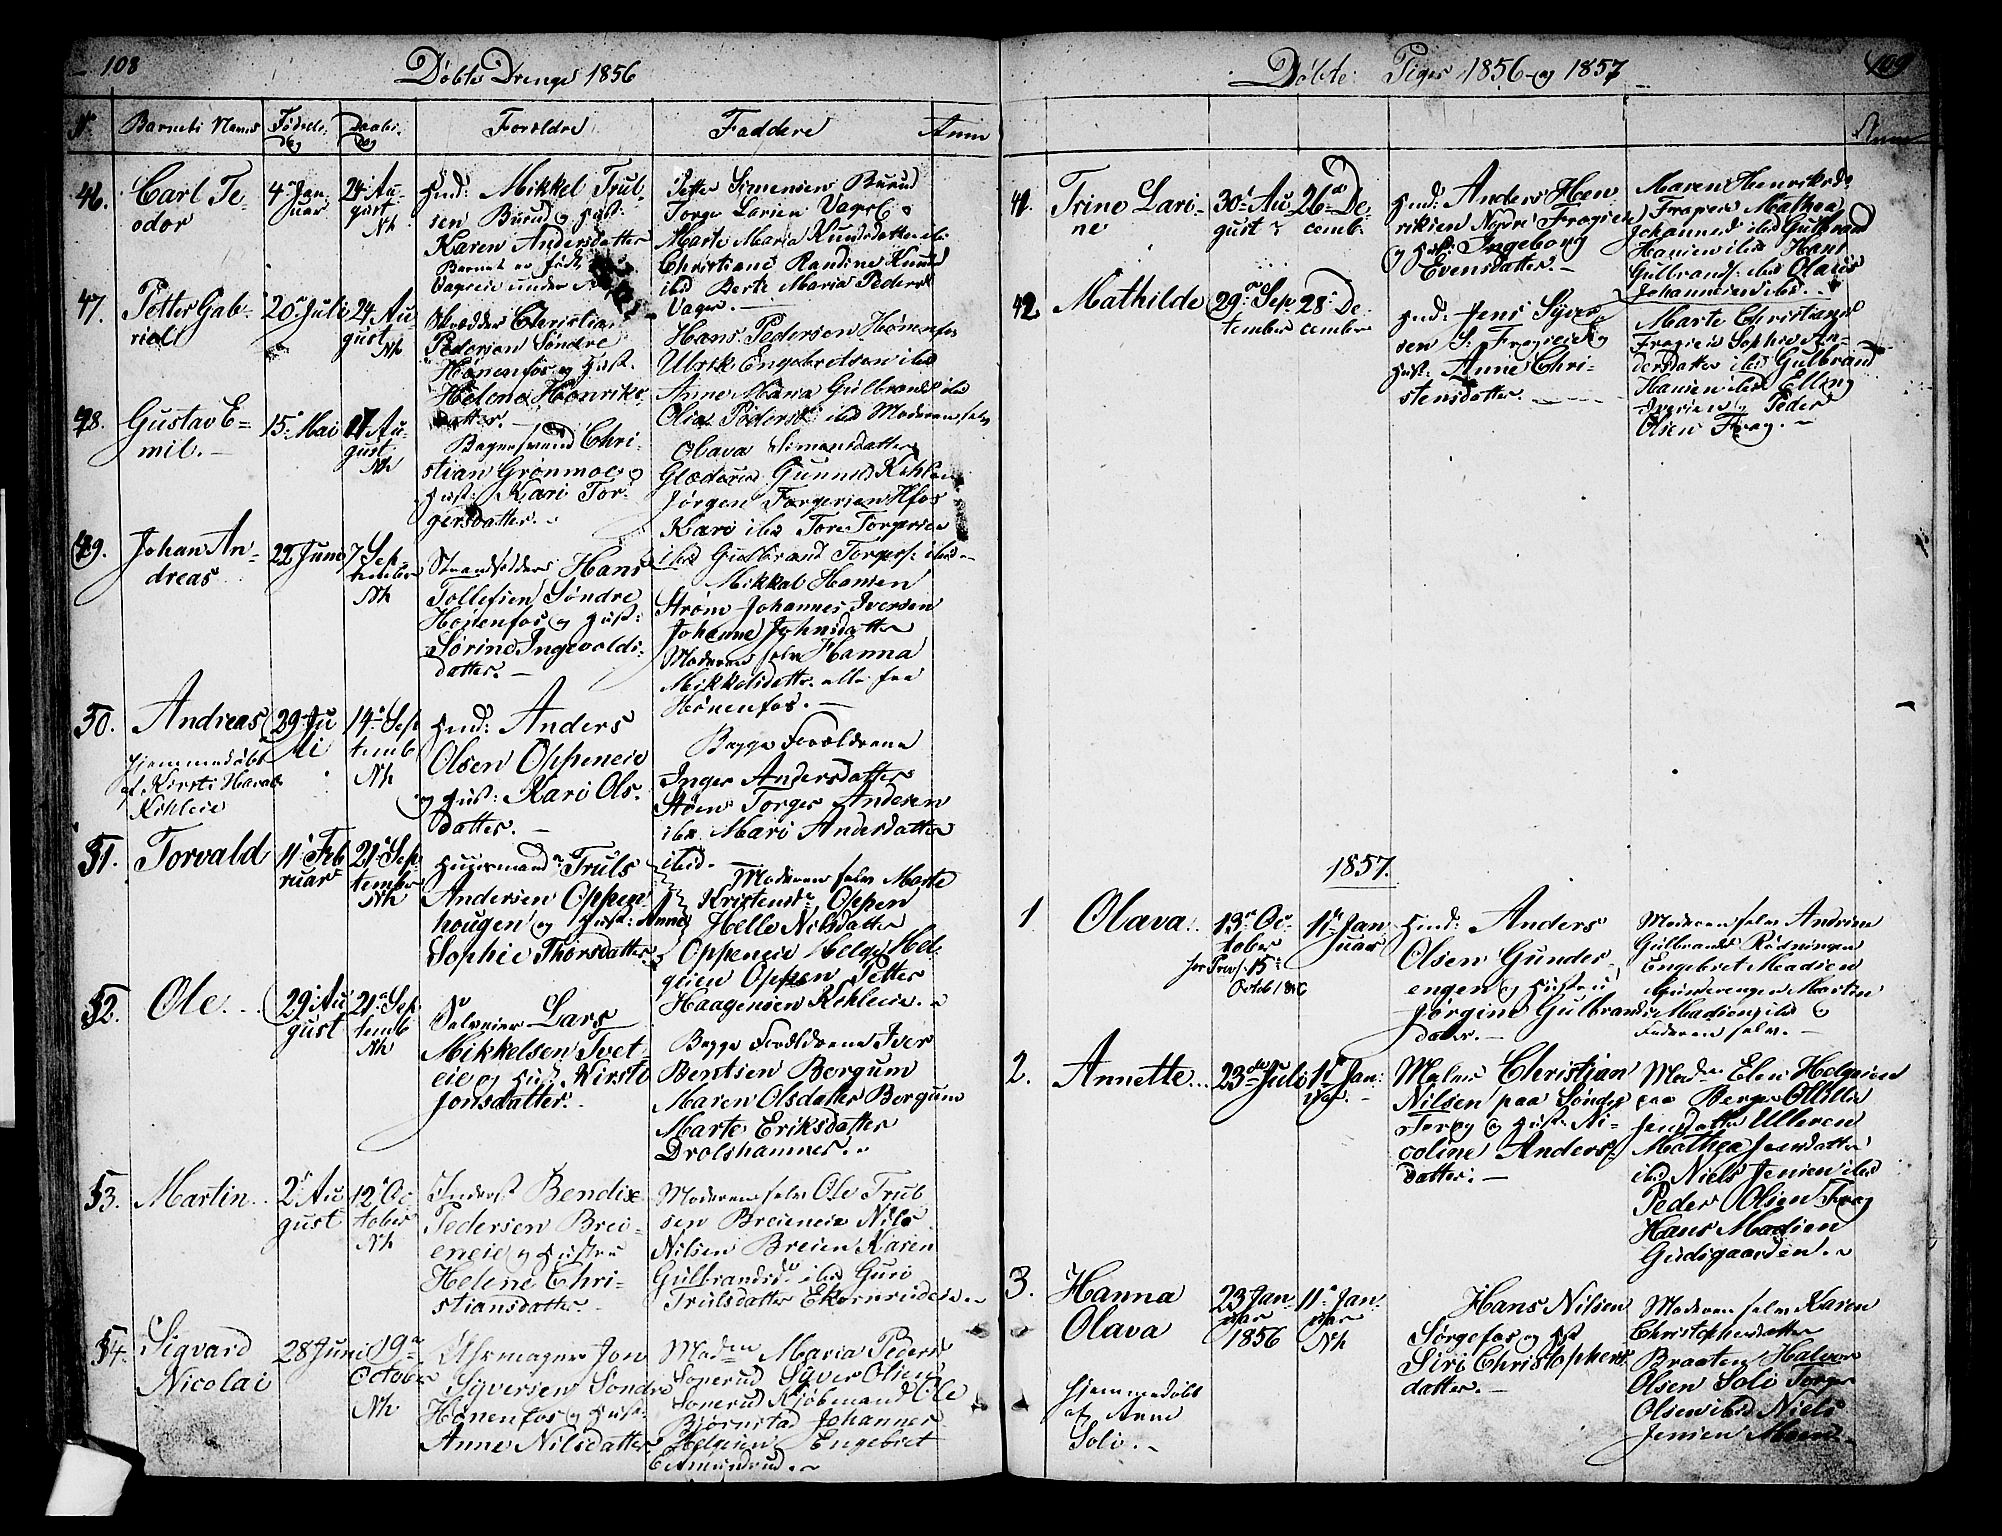 108
Døbte Drenge 1856
No Barnets Navn Fødsels dag Daabs dag Forældre Faddere Anm
46. Carl Te-
odor
4de Jan-
uar
24 Au-
gust
Nk
Gmd: Mikkel Trul-
sen Burud og Hust:
Karen Andersdatter
Barnet er født
Petter Simensen Burud
Torge Larsen
Marte Maria Knudsdatter ibi
Christiane Randine Knud
ibid Berte Maria Peders
47. Petter Gab-
riel
20de Juli
24 Au-
gust
Nk
Skrædder Christian
Pedersen Søndre
Hønenfos og Hust.
Helene Henriks-
datter.
Hans Pederson Hønenfos
Ulrik Engebretsen ibid
Anne Maria Gulbrands ibid
Olia Peders ibid Moderen selv
48. Gustav E-
mil.
15 Mai
27 Au-
gust
Nk
Bagersvend Chri-
stian Grønmoe og
Hust: Kari Tor-
gersdatter.
Olava Simensdatter
Gunnild Kihlen
Jørgen Torgersen Hfos
Kari ibid Tore Torgersen
ibid Gudbrand Torgers: ibid
49. Johan An-
dreas
22 Juni
7 Sep
tember
Nk
Strandsidder Hans
Tollefsen Søndre
Hønenfos og Hust:
Sørine Ingevolds-
datter.
Mikkel Hansen
Strøm Johannes Iversen
Johanne Johnsdatter
Moderen selv Hanna
Mikkelsdatter alle fra
Hønenfos.
50. Andreas
Hjemmedøbt
af Kirsti
Kihleie
29 Ju
li
14 Sep
temb
Nk
Gmd: Anders
Olsen Oppeneie
og Hust: Kari Ols-
datter.
Begge Forældrene
Inger Andersdatter
Støen Torger Andersen
ibid Mari Andersdatter
ibid.
51. Torvald
11 Feb
ruar
21 Sep-
tember
Nk
Huusmand Truls
Andersen Oppen-
hougen og Hust: Anne
Sophie Thorsdatter
Moderen selv Marte
Kristensdr Oppen
Helle Nilsdatter
Oppeneie Helge Hel-
gesen Oppen Petter
Haagensen Kihleie.
52. Ole
29 Au
gust
21 Sep
temb
Nk
Selveier Lars
Mikkelsen Tvet-
eie og Hust. Kirsti
Jonsdatter.
Begge Forældrene Iver
Bentsen Bergum
Maren Olsdatter Bergum
Marte Eriksdatter
Drolshammer.
53. Martin
2 Au
gust
12 Oc
tober
Nk
Inderst Bendix
Pedersen Brei-
eneie og Hustru
Helene Chri-
stiansdatter
Moderen selv Ole Trul-
sen Breieneie Nils
Nilsen Breien Karen
Gulbrandsdr ibid Guri
Trulsdatter Ekornrudeie.
54. Sigvard
Nicolai
28 Juni
19de
October
Nk
Uhrmager Jon
Syversen Søndre
Hønenfos og Hust:
Anne Nilsdatter
Madam Maria Peders
Sonerud Syver Olsen
Sonerud Kjøbmand Ole
Bjørnstad Johannes
Helgesen Engebret
109
Døbte Piger 1856 og 1857
Anm
41. Trine Lari-
ne
30 Au
gust
26 De-
cemb
Gmd: Anders Hen
riksen Nordre Fragsien
og Hust: Ingeborg
Evensdatter.
Maren Henriksdr
Mathea
Johannesd ibid Gulbrand
Hansen ibid Hans
Gulbrands: ibid Olaus
Johannesen ibid.
42. Mathilde
29 Sep
tember
28 De-
cember
Gmd: Jens Syver
sen S: Frogsieie og
Hust: Anne Chri-
stensdatter.
Marte Christians
Sophie An-
dersdatter ibid Gulbrand
Hansen ibid Elling
Iversen og Peder
Olsen Frog.
1857.
1 Olava.
13 Oc-
tober
15
Octob 1856
11 Jan
uar
Gmd: Anders
Olsen Gunder-
engen og Hustru
Jørgine Gulbrands
datter.
Moderen selv Andrine
Gulbrands Rødningen
Engebret Madsen
Gunderengen Martin
Madsen ibid og
Faderen selv.
2. Annette
23de Juli
11 Jan:
uar.
Maler Christian
Nilsen paa Søndre
og Hust: Ni-
coline Anders-
datter.
Madm Elen Helgesen
paa Berger Olilla
Jensdatter Ulleren
Mathea Jensdatter
ibid Niels Jensen ibid
Peder Olsen Frog
Hans Madsen
Gudsgaarden.
3. Hanna
Olava
Hjemmedøbt
af Anne
Soli.
23 Jan-
uar
1856
11 Jan-
uar
Nk
Hans Nilsen
Sørgefos og Hst
Siri Christophers
datter.
Moderen selv Karen
Christophersdatter
Braaten Halvor
Olsen Soli Torger
Olsen ibid Niels
Jensen